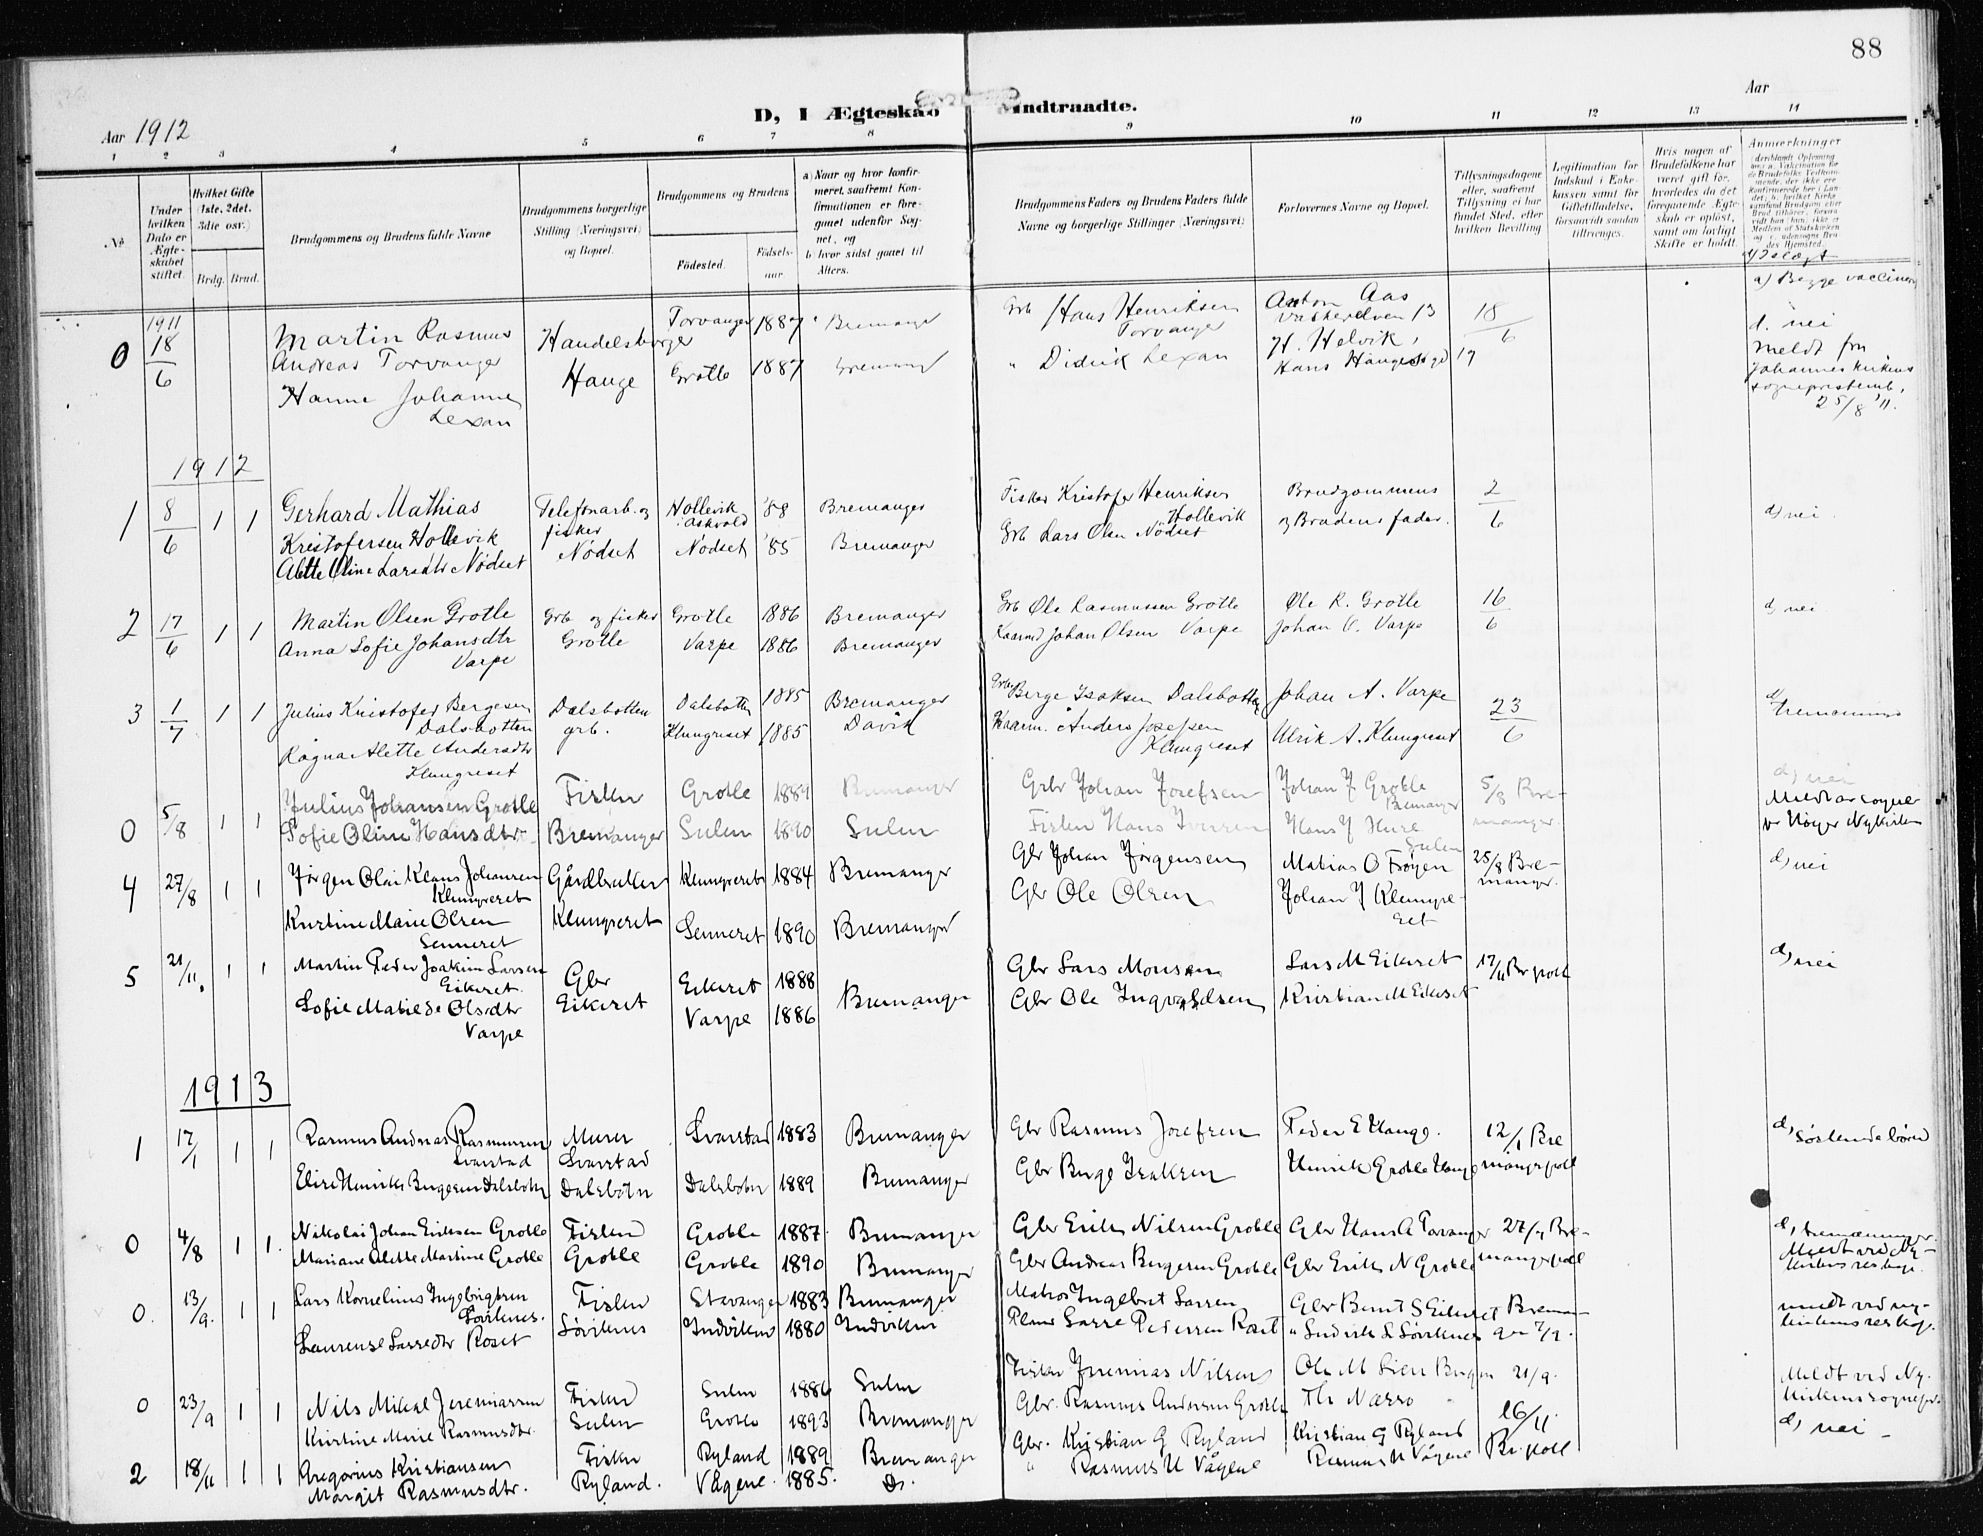 88
D, I Ægteskab Indtraadte.
Aar 1912
Aar
1 2 3 4 5 6 7 8 9 10 11 12 13 14
No
Under hvilken Dato er Ægteskabet stiftet.
Hvilket Gifte (1ste, 2det, 3die osv.)
Brdg. Brud.
Brudgommens og Brudens fulde Navne
Brudgommens borgerlige Stilling (Næringsvei) og Bopæl.
Brudgommens og Brudens
Fødested.
Fødselsaar.
a) Naar og hvor konfirmeret, saafremt Konfirmationen er foregaaet udenfor Sognet, og
b) hvor sidst gaaet til Alters.
Brudgommens Faders og Brudens Faders fulde Navne og borgerlige Stillinger (Næringsvei)
Forlovernes Navne og Bopæl.
Tillysningsdagene eller, saafremt Tillysning ei har fundet Sted, efter hvilken Bevilling
Legitimation for Indskud i Enkekassen samt for Giftetilladelse, forsaavidt saadan tiltrænges.
Hvis nogen af Brudefolkene har været gift før, hvorledes da det foregaaende Ægteskab er opløst, samt om lovligt Skifte er holdt.
Anmærkninger
a) Begge vaccinert
0 1911 18/6 Martin Rasmus Handelsborger Torvanger 1887 Bremanger Grb Hans Henriksen Torvanger Anton Aas 13 18/6 d. nei
Andreas Torvanger Hauge Grotle 1887 Bremang " Didrik Lexau H. Helvik, Hans Haugesgd 17 Meldt fra
Hanne Johanne Lexau Johanneskirkens sogneprestemb. 25/8 '11.
1912
1 8/6 1 1 Gerhard Mathias Kristofersen Hollevik Telefonarb. og fisker Hollevik Askvold '88 Bremanger Fisker Kristofer Henriksen Hollevik Brudgommens 2/6 d, nei
Alette Oline Larsdtr Nødset Nødset Nødset '85 Bremanger Grb Lars Olsen Nødset og Brudens fader.
2 17/6 1 1 Martin Olsen Grotle Grb og fisker Grotle 1886 Bremanger Grb Ole Rasmussen Grotle Ole R. Grotle 16/6 d, nei
Anna Sofie Johansdtr Varpe Grotle Varpe 1886 Bremanger Kaarmd Johan Olsen Varpe Johan O. Varpe
3 1/7 1 1 Julius Kristofer Bergesen Dalsbotten Dalsbotten grb. Dalsbotten 1885 Bremanger Grbr Berge Isaksen Dalsbotten Johan A. Varpe 23/6 d, tremenninge
Ragna Alette Andersdtr Klungreset Klungreset 1885 Davik Kaarm. Anders Josefsen Klungreset Ulrik A. Klungreset
0 5/8 1 1 Julius Johansen Grotle Fisker Grotle 1889 Bremanger Grbr Johan Josefsen Johan J Grotle Bremanger 5/8 Bremanger. d, nei
Sofie Oline Hansdtr. Bremanger Sulen 1890 Sulen Fisker Hans Iversen Hans J Sulen Meldt av sognepr Nykirken
4 27/8 1 1 Jørgen Olai Klaus Johansen Klungreset Gårdbruker Klungreset 1884 Bremanger Gbr Johan Jørgensen Matias O Frøyen 25/8 Bremanger. d, nei
Kristine Marie Olsen Senneset Klungreset Senneset 1890 Bremanger Gbr Ole Olsen Johan J Klungreset
5 21/11. 1 1 Martin Peder Joakim Larsen Eikeset. Gbr Eikeset 1888 Bremanger Gbr Lars Monsen Lars M Eikeset 17/11 Br.poll d, nei
Sofie Matilde Olsdtr Varpe Eikeset Varpe 1886 Gbr Ole Ingvaldsen Kristian M Eikeset
1913
1 17/1 1 1 Rasmus Andreas Rasmussen Svarstad Murer Svarstad Svarstad 1883 Bremanger Gbr Rasmus Josefsen Peder E Hauge. 12/1 Bremangerpoll d, søskendebørn
Elise Henrikke Bergesen Dalsbotn Dalsbotn Dalsbotn 1889 Bremanger Gbr Berge Isaksen Henrik Grotle Hauge
0 4/8 1 1. Nikolai Johan Eriksen Grotle Fisker Grotle 1887. Bremanger Gbr Erik Nilsen Grotle Gbr Hans A Torvanger 27/7 Bremangerpoll d, tremenninger.
Mariane Alette Martine Grotle Grotle Grotle 1890 Bremanger Gbr Andreas Bergesen Grotle Gbr Erik N Grotle Meldt ved Nykirkens reskap.
0. 13/9. 1 1 Lars Kornelius Ingebrigtsen Sørknes. Fisker Stavanger 1883 Bremanger Matros Ingebret Larsen Gbr Bernt S Eikeset Bremanger 7/9. meldt ved nykirkens reskap.
Laurense Lassedtr Roset Sørknes Indviken 1880 Indviken Lasse Pedersen Roset " Ludvik L Sørknes
0 23/9 1 1 Nils Mikal Jeremiassen Fisker Sulen 1886 Sulen Fisker Jeremias Nilsen Ole M Lien Bergen 21/9. Meldt ved Nykirkens sognepr.
Kristine Marie Rasmusdtr. Sulen Grotle 1893 Bremanger Gbr. Rasmus Andersen Grotle Th Næssø
2 18/11 1 1 Gregorius Kristiansen Fisker Ryland 1889 Bremanger Gbr. Kristian G Ryland Kristian G Ryland 16/11. Br.poll d, nei -
Margit Rasmusdtr. Ryland. Vågene. 1885. Do. " Rasmus N Vågene Rasmus N Vågene